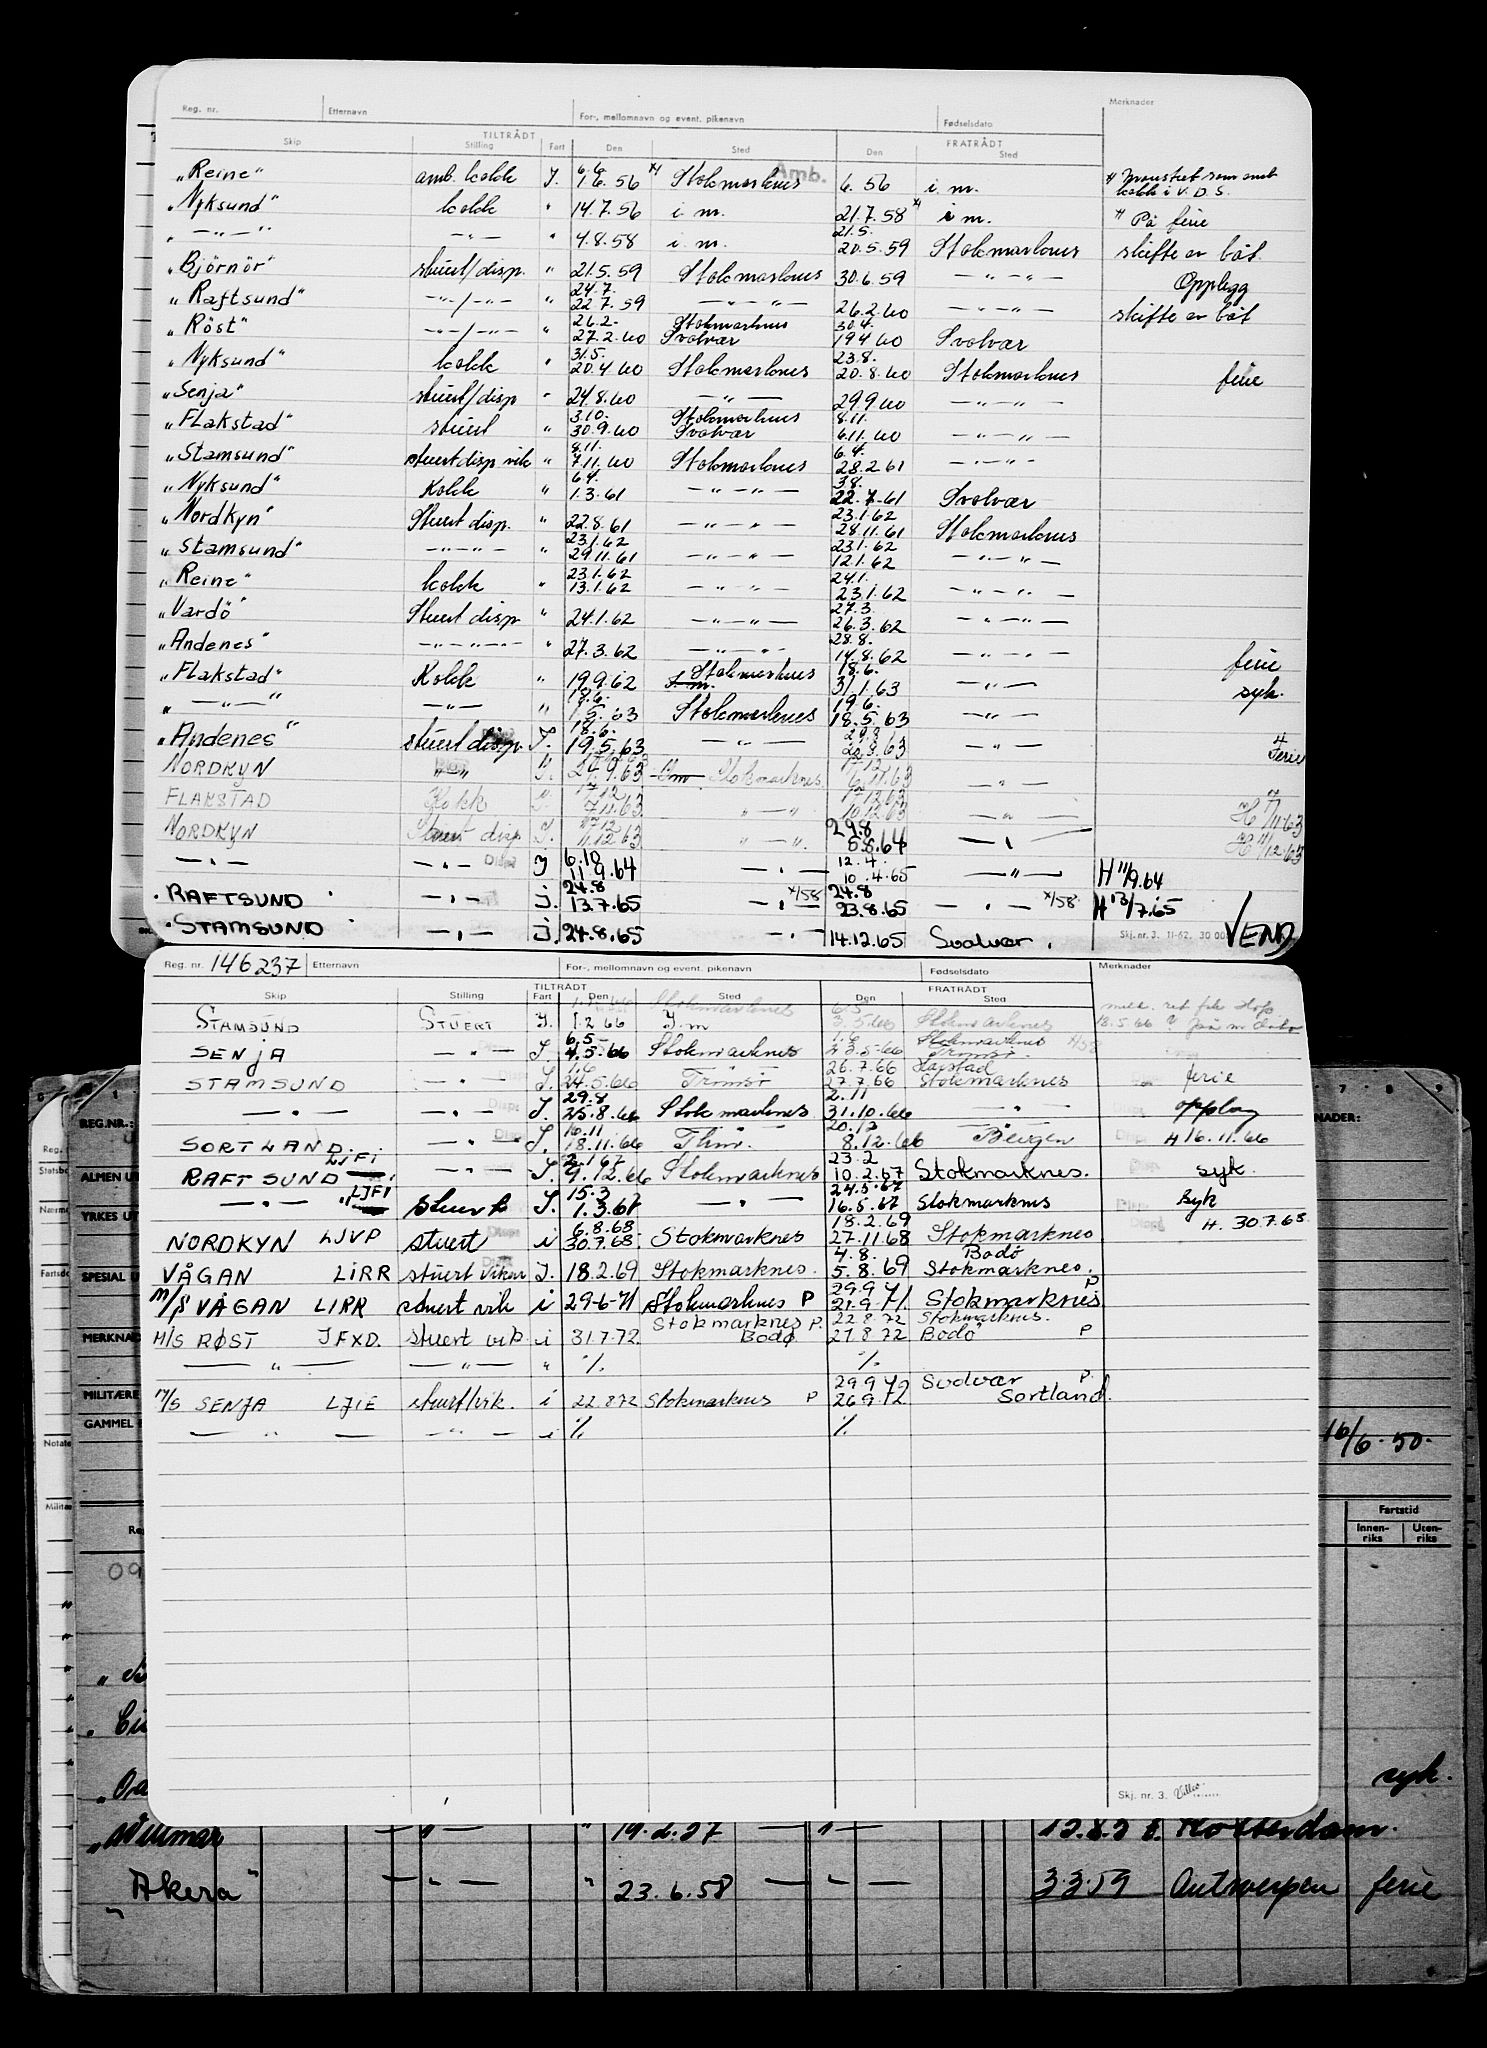 Reg. nr. Etternavn For-, mellomnavn og event. pikenavn Fødselsdato Merknader
TILTRÅDT FRATRÅDT
Skip Stilling Fart Den Sted Den Sted
Amb.
6.6.
"Reine" amb. kokk I. 1.6.56 x) Stokmarknes 6.56 i.m. x) Mønstret som amb.
kokk i V.D.S.
"Nyksund" kokk " 14.7.56 i.m. 21.7.58 x) i m. x) På ferie
21.5.
" — " — " — " — " 4.8.58 i.m. 20.5.59 Stokmarknes skifte av båt.
"Björnör" stuert/disp. " 21.5.59 Stokmarknes 30.6.59 — " — " — Opplegg
24.7.
"Raftsund" — " — / — " — " 22.7.59 — " — " — 26.2.60 — " — " — skifte av båt
26.2. Stokmarknes 30.4.
"Röst" — " — / — " — " 27.2.60 Svolvær 19.4.60 Svolvær
31.5. 23.8.
"Nyksund" kokk " 20.4.60 Stokmarknes 20.8.60 Stokmarknes ferie
"Senja" stuert/disp " 24.8.60 — " — 29.9.60 — " — " —
3.10. Stokmarknes 8.11.
"Flakstad" stuert " 30.9.60 Svolvær 6.11.60 — " — " —
8.11. 6.4.
"Stamsund" stuert disp vik " 7.11.60 Stokmarknes 28.2.61 — " — " —
6.4. 3.8.
"Nyksund" Kokk " 1.3.61 — " — " — 22.7.61 Svolvær
23.1.62
"Nordkyn" Stuert disp. " 22.8.61 — " — " — 28.11.61 Stokmarknes
23.1.62 23.1.62
"Stamsund" — " — " — " 29.11.61 — " — " — 12.1.62 — " — " —
23.1.62 24.1.
"Reine" kokk " 13.1.62 — " — " — 23.1.62 — " — " —
27.3.
"Vardö" Stuert disp " 24.1.62 — " — " — 26.3.62 — " — " —
28.8.
"Andenes" — " — " — " 27.3.62 — " — " — 14.8.62 — " — " — ferie
Stokmarknes 18.6.
"Flakstad" Kokk " 19.9.62 31.1.63 — " — syk.
18.6. 19.6.
" — " — " — " — " 1.5.63 Stokmarknes 18.5.63 — " —
18.6. 29.8
"Andenes" stuert disp. I. 19.5.63 — " — 20.8.63 — " — Ferie
17.12
NORDKYN " — " I. 24.9.63 Stokmarknes. 6.11.63 — " —
17.12 17.12.63
FLAKSTAD Kokk I. 7.11.63 " — " 10.12.63 — " — H 7/11.63
17.12 29.8
NORDKYN Stuert disp I. 11.12.63 " — " 5.8.64 — " — H 11/12.63
6.10 12.4.
— " — — " — Disp I 11.9.64 — " — 10.4.65 — " — H 11/9.64
24.8 24.8
. RAFTSUND — " — i. 13.7.65 — " — x/58 23.8.65 — " — x/58 H 13/7.65
. STAMSUND — " — i. 24.8.65 — " — 14.12.65 Svolvær.
Skj. nr. 3. 11-62. 30 00 VEND
Reg. nr. 146237 Etternavn For-, mellomnavn og event. pikenavn Fødselsdato Merknader
TILTRÅDT FRATRÅDT
Skip Stilling Fart Den Sted Den Sted
Stokmarknes 6.5
STAMSUND STUERT I. 1.2.66 I.m 3.5.66 Stokmarknes 18.5.66
6.5- 1.6 Stokmarknes H58
SENJA — " — I. 4.5.66 Stokmarknes 23.5.66 Tromsø.
1.6 26.7.66 Harstad
STAMSUND — " — I. 24.5.66 Tromsø 27.7.66 Stokmarknes ferie
29.8 2.11
— " — — " — I. 25.8.66 Stokmarknes 31.10.66 — " — opplag
16.11 20.12
SORTLAND. — " — I. 18.11.66 Thm. 8.12.66 Bergen H 16.11.66
LJFI 2.1.67 23.2
RAFTSUND — " — I. 9.12.66 Stokmarknes 10.2.67 Stokmarknes. syk.
"LJFI 15.3 24.5.67
— " — stuert I. 1.3.67 — " — 16.5.67 Stokmarknes Syk
6.8.68 18.2.69
NORDKYN LJVP stuert i 30.7.68. Stokmarknes 27.11.68 Stokmarknes H. 30.7.68.
4.8. Bodö
VÅGAN LIRR stuert vikar I. 18.2.69 Stokmarknes. 5.8.69 Stokmarknes.
29.9 P
M/S VÅGAN LIRR stuert vik i 29-6-71 Stokmarknes P 21.9.71. Stokmarknes
Stokmarknes P. 22.8.72 Stokmarknes.
H/S RØST JFXD. stuert vik. i 31.7.72 Bodø 21.8.72 Bodø P
— " — — " — " % %
29.9.72 Svolvær P.
M/S SENJA LJIE stuert/vik. i 22.8.72 Stokmarknes P 26.9.72 Sortland.
— " — — " — i % %
Skj. nr. 3.
REG.NR.:
ALMEN UT
YRKES UT
SPESIAL U
MERKNAD
MILITÆRE
GAMMEL
7 8 9
NADER:
16/6.50.
Fartstid
Innen-
riks
Uten-
riks
09
syk.
— " — " 19.2.57 — " — Rotterdam.
"Akera" — " — " 23.6.58 — " — 3.3.59 Antwerpen ferie